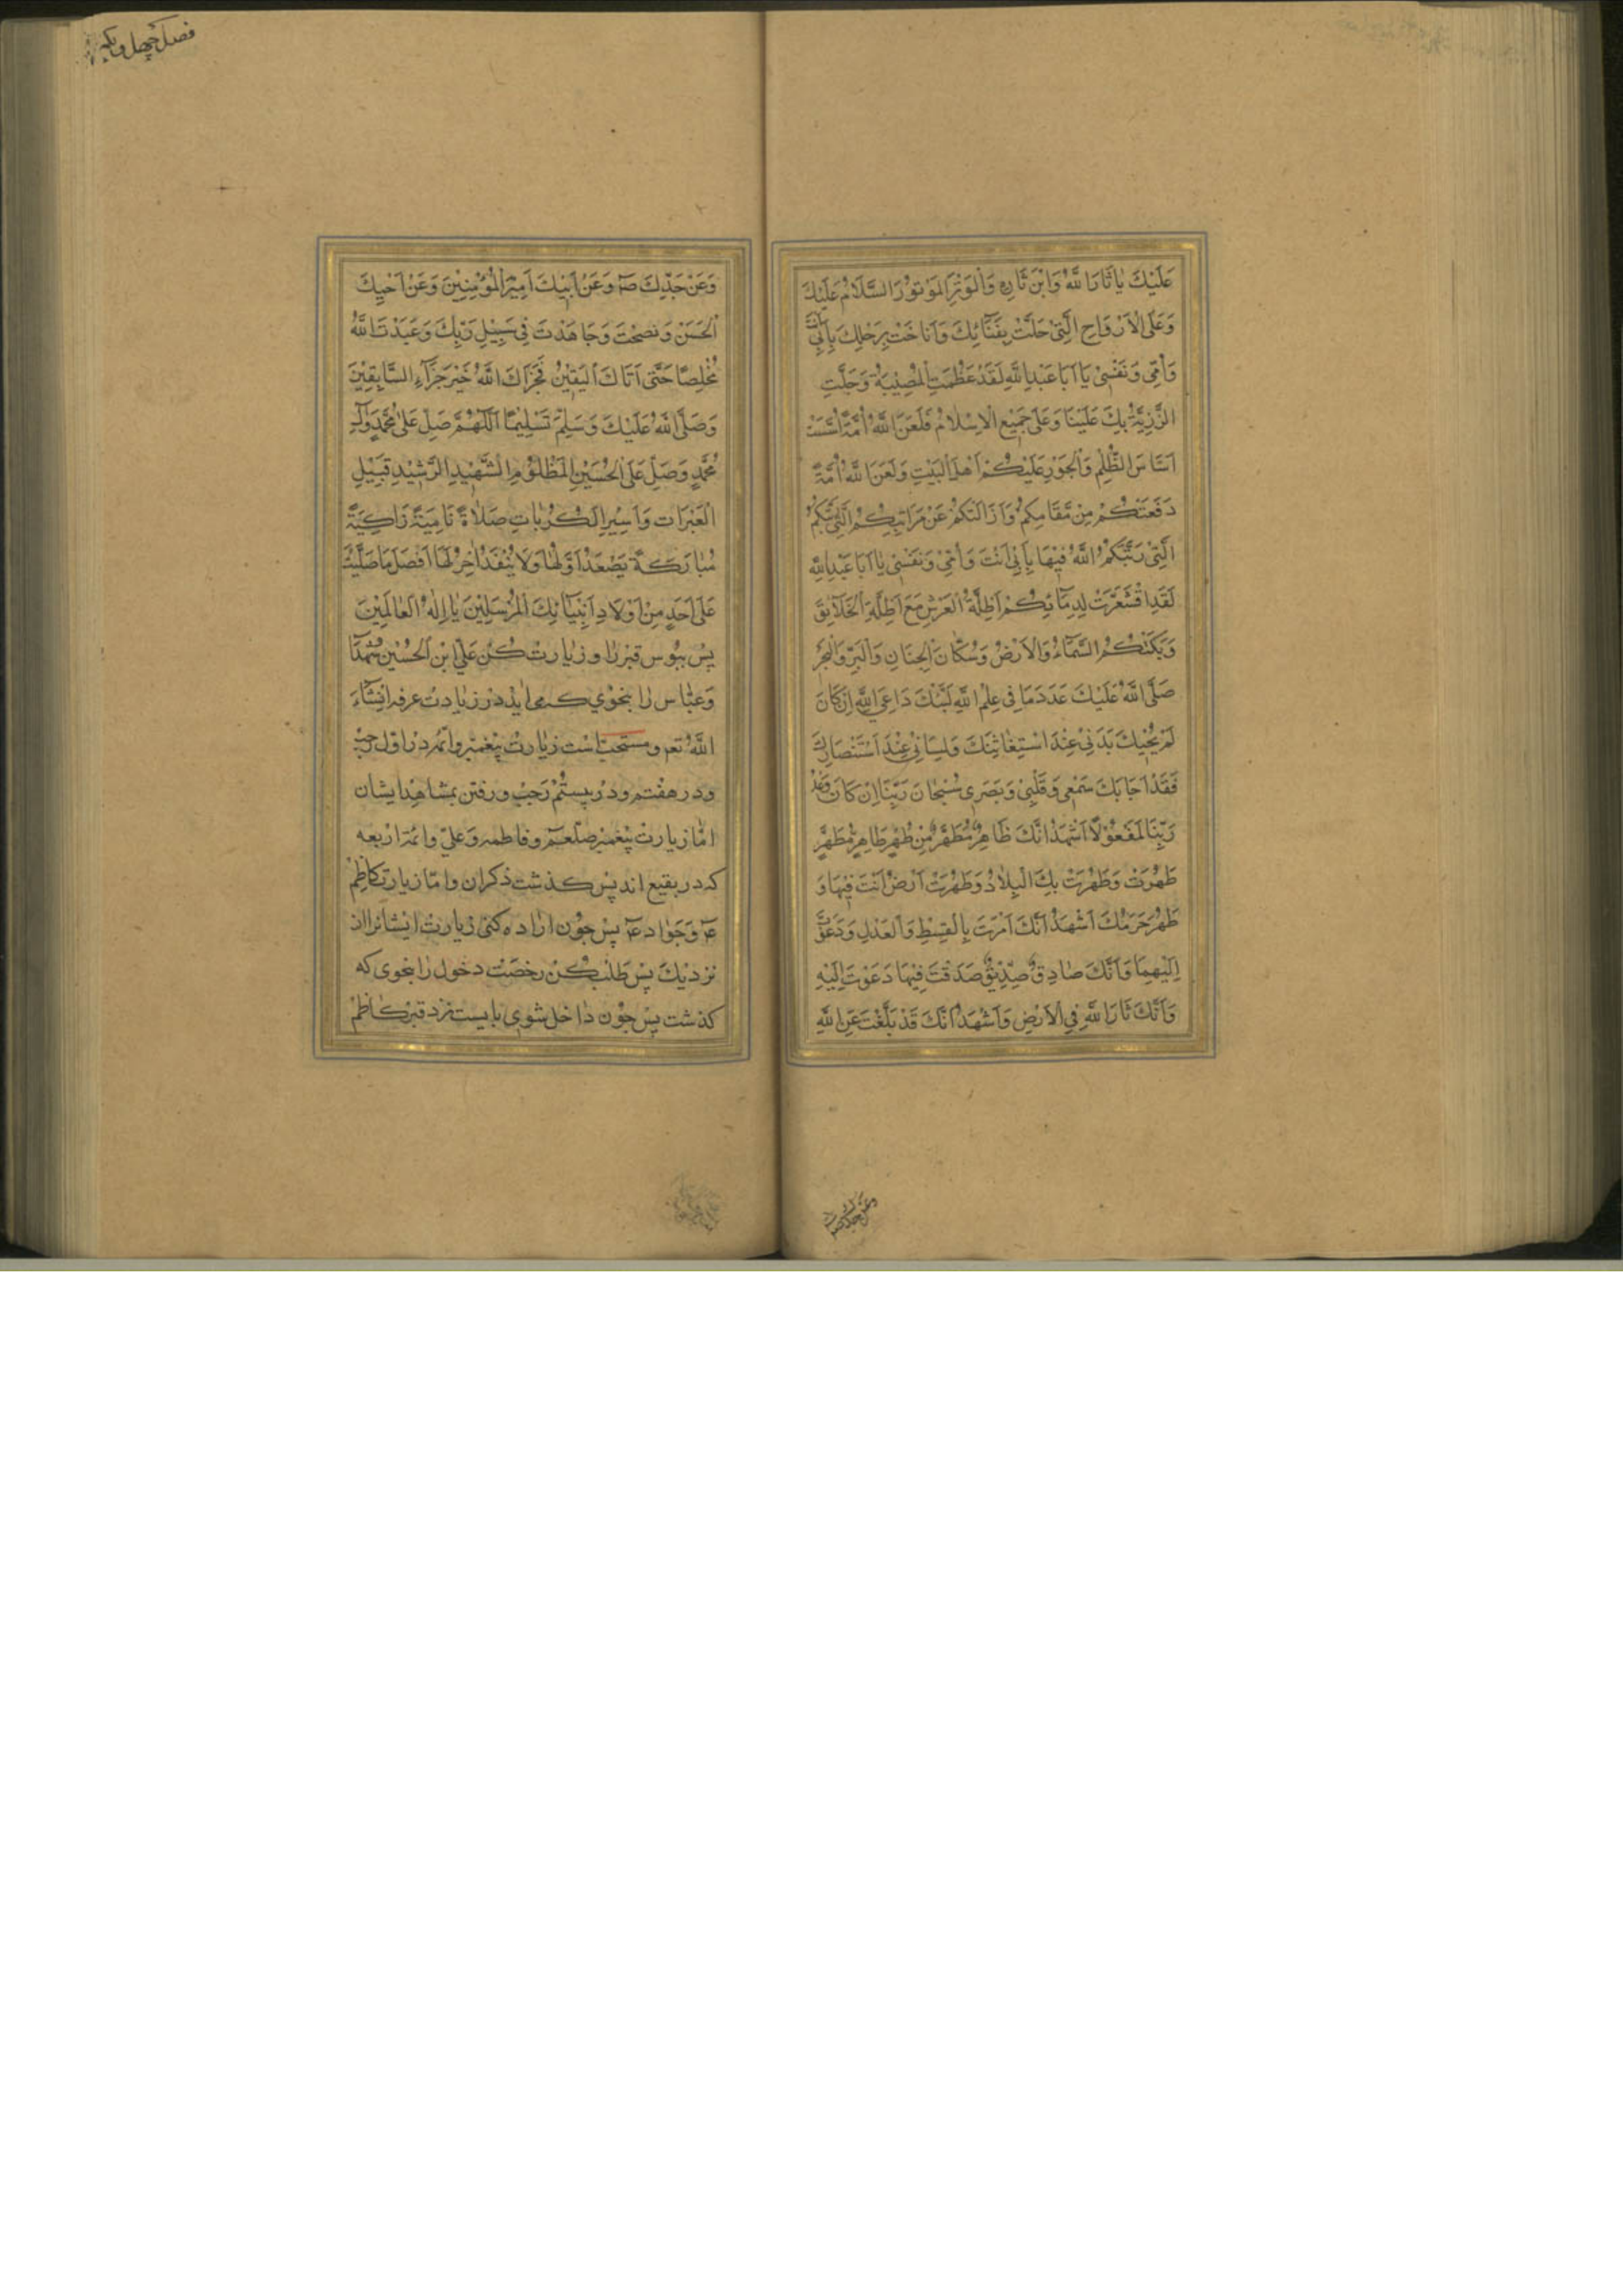 عَلَيْكَ يَا ثَارَ اللهِ وَابْنَ ثَارِهِ وَالْوَتْرَ الْمَوْتُوْرَ السَّلَامُ عَلَيْكَ
وَعَلَى الْاَرْوَاحِ الَّتِىْ حَلَّتْ بِفَنَائِكَ وَاَنَاخَتْ بِرَحْلِكَ بِاَبِىْ اَنْتَ
وَاُمِّى وَنَفْسِىْ يَا اَبَا عَبْدِ اللهِ لَقَدْ عَظُمَتِ الْمُصِيْبَةُ وَجَلَّتِ
الرَّزِيَّةُ بِكَ عَلَيْنَا وَعَلَى جَمِيْعِ الْاِسْلَامِ فَلَعَنَ اللهُ اُمَّةً اَسَّسَتْ
اَسَاسَ الظُّلْمِ وَالْجَوْرِ عَلَيْكُمْ اَهْلَ الْبَيْتِ وَلَعَنَ اللهُ اُمَّةً
دَفَعَتْكُمْ مِنْ مَقَامِكُمْ وَاَزَالَتْكُمْ عَنْ مَرَاتِبِكُمْ الَّتِىْ رَتَّبَكُمْ
الَّتِىْ رَتَّبَكُمُ اللهُ فِيْهَا بِاَبِىْ اَنْتَ وَاُمِّىْ وَنَفْسِىْ يَا اَبَا عَبْدِ اللهِ
لَقَدِ اقْشَعَرَّتْ لِدِمَائِكُمْ اَظِلَّةُ الْعَرْشِ مَعَ اَظِلَّةِ الْخَلَائِقَ
وَبَكَتْكُمُ السَّمَاءُ وَالْاَرْضُ وَسُكَّانَ الْجِنَانِ وَالْبَرِّ وَالْبَحْرِ
صَلَّى اللهُ عَلَيْكَ عَدَدَ مَا فِى عِلْمِ اللهِ لَبَّيْكَ دَاعِىَ اللهِ اِنْ كَانَ
لَمْ يُجِبْكَ بَدَنِىْ عِنْدَ اسْتِغَاثَتِكَ وَلِسَانِىْ عِنْدَ اسْتِنْصَارِكَ
فَقَدْ اَجَابَكَ سَمْعِى وَقَلْبِىْ وَبَصَرِى سُبْحَانَ رَبِّنَا اِنْ كَانَ وَعْدُ
رَبِّنَا لَمَفْعُوْلًا اَشْهَدُ اَنَّكَ طَاهِرٌ مُطَهَّرٌ مِنْ طُهْرٍ طَاهِرٍ مُطَهَّرٍ
طَهُرْتَ وَطَهُرَتْ بِكَ الْبِلَادُ وَطَهُرَتْ اَرْضٌ اَنْتَ فِيْهَا وَ
طَهُرَ حَرَمُكَ اَشْهَدُ اَنَّكَ اَمَرْتَ بِالْقِسْطِ وَالْعَدْلِ وَدَعَوْتَ
اِلَيْهِمَا وَاَنَّكَ صَادِقٌ صِدِّيْقٌ صَدَقْتَ فِيْهَا دَعَوْتَ اِلَيْهِ
وَاَنَّكَ ثَارَ اللهِ فِى الْاَرْضِ وَاَشْهَدُ اَنَّكَ قَدْ بَلَّغْتَ عَنِ اللهِ
وعن جدك ص
فصل چهل و یکم
وَعَنْ جَدِّكَ ص وَعَنْ اَبِيْكَ اَمِيْرِ الْمُؤْمِنِيْنَ وَعَنْ اَخِيْكَ
الْحَسَنِ وَنَصَحْتَ وَجَاهَدْتَ فِى سَبِيْلِ رَبِّكَ وَعَبَدْتَ اللهَ
مُخْلِصًا حَتَّى اَتَاكَ الْيَقِيْنُ فَجَزَاكَ اللهُ خَيْرَ جَزَاءِ السَّابِقِيْنَ
وَصَلَّى اللهُ عَلَيْكَ وَسَلِّمْ تَسْلِيْمًا اَللّٰهُمَّ صَلِّ عَلَى مُحَمَّدٍ وَآلِ
مُحَمَّدٍ وَصَلِّ عَلَى الْحُسَيْنِ الْمَظْلُوْمِ الشَّهِيْدِ الرَّشِيْدِ قَتِيْلِ
الْعَبَرَاتِ وَاَسِيْرِ الْكُرُبَاتِ صَلَاةً نَامِيَةً زَاكِيَةً
مُبَارَكَةً يَصْعَدُ اَوَّلُهَا وَلَا يَنْفَدُ اٰخِرُهَا اَفْضَلَ مَا صَلَّيْتَ
عَلَى اَحَدٍ مِنْ اَوْلَادِ اَنْبِيَائِكَ الْمُرْسَلِيْنَ يَا اِلٰهَ الْعَالَمِيْنَ
پس ببوس قبر را و زیارت کن علی ابن الحسین و شهدا
وعباس را بنحوی که می اید در زیادت عرفه انشاء
الله تعم و مستحب است زیارت پیغمبر و ائمه در اول رجب
ودر هفتم ودر بیستم رجب ورفتن بمشاهد ایشان
اما زیارت پیغمبر صلعم وفاطمه وعلی وائمه اربعه
که در بقیع اند پس کذشت ذکران واما زیارت کاظم
ع وجواد ع پس چون اراده کنی زیارت ایشانرا از
نزدیك پس طلب کن رخصت دخول را بنحوی که
کذشت پس چون داخل شوی بایست نزد قبر کاظم